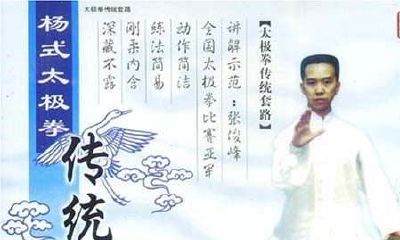 太极拳传统套路
杨式太极拳
传统
【太极拳传统套路】
讲解示范：张俊峰
全国太极拳比赛亚军
动作简洁
练法简易
刚柔内含
深藏不露